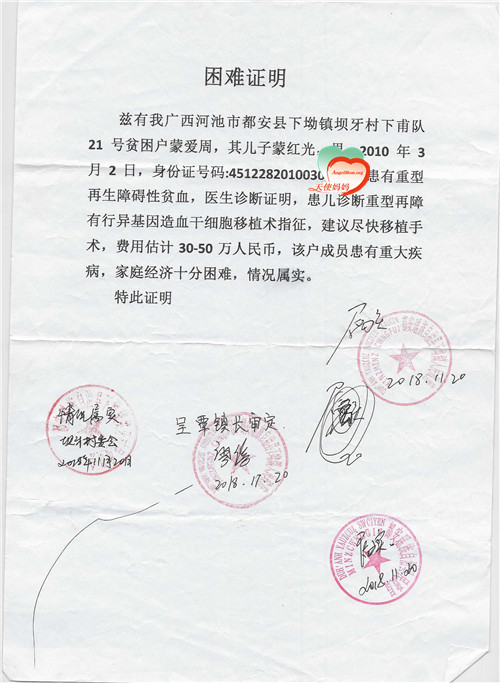 困难证明
兹有我广西河池市都安县下坳镇坝牙村下甫队
21 号贫困户蒙爱周，其儿子蒙红光，男，2010 年 3
月 2 日，身份证号码:4512282010030 患有重型
再生障碍性贫血，医生诊断证明，患儿诊断重型再障
有行异基因造血干细胞移植术指征，建议尽快移植手
术，费用估计 30-50 万人民币，该户成员患有重大疾
病，家庭经济十分困难，情况属实。
特此证明
Angelmom.org
天使妈妈
属实
2018.11.20
情况属实
坝牙村委会
2018年11月20日
呈覃镇长审定
2018.17.20
2018.11.20